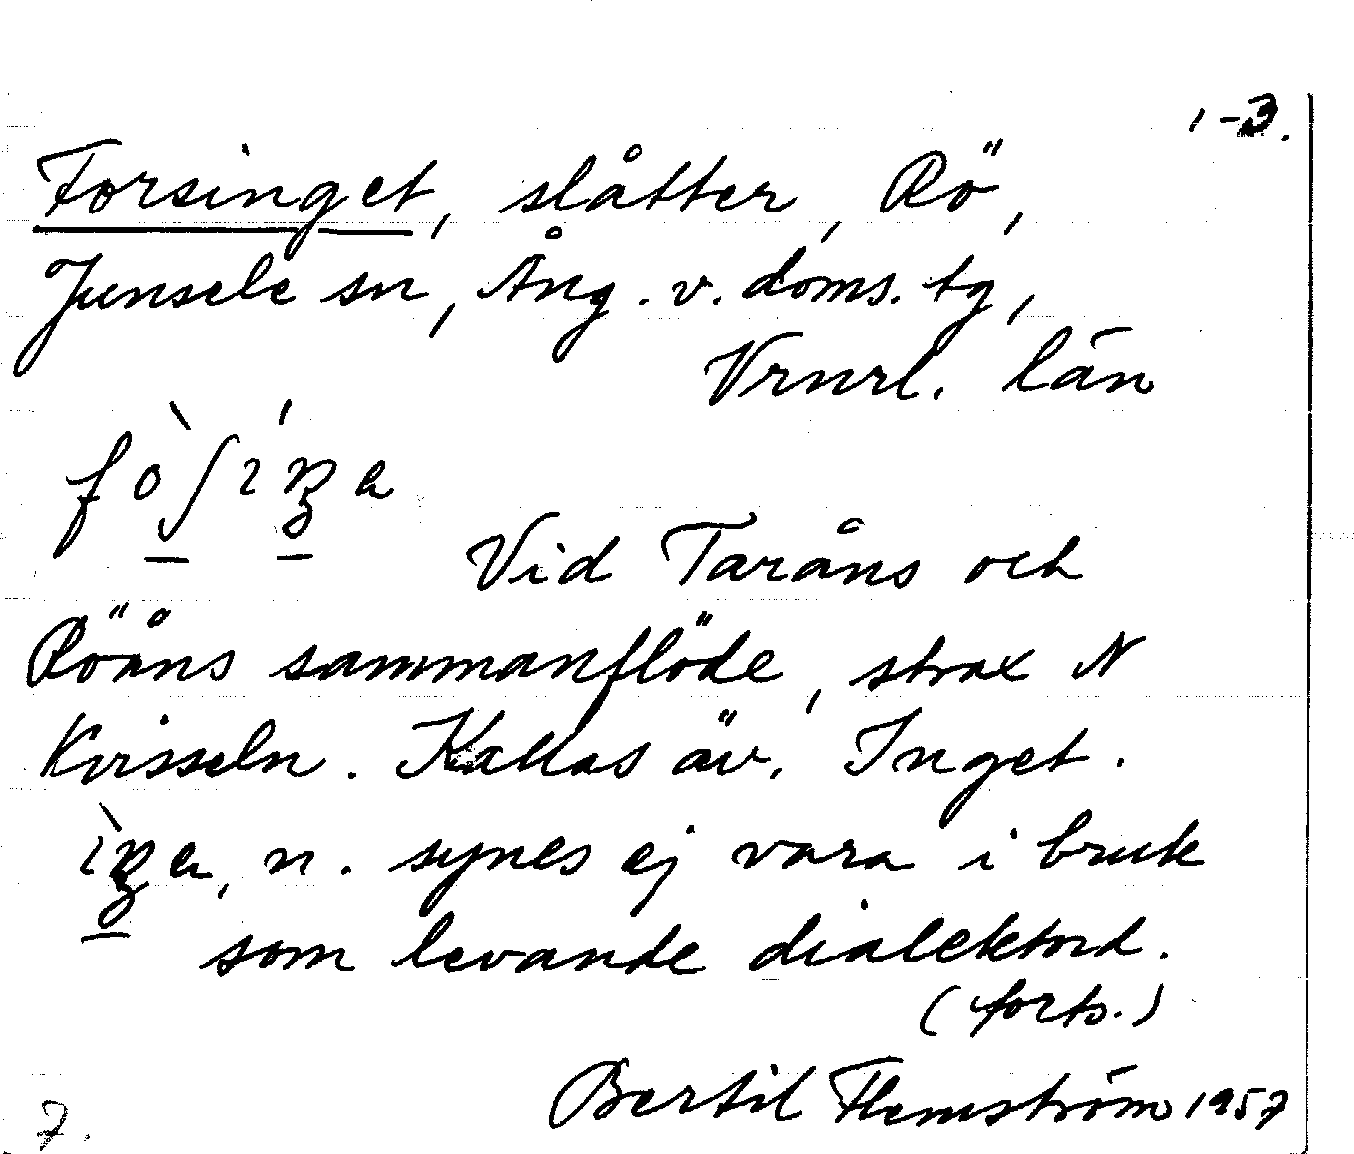 1-3.
Forsinget, slåtter, Rö,
Junsele sn, Ång. v. doms. tg,
Vrnrl. län
Vid Taråns och
Rööns sammanflöde, strax N
Kvisseln. Kallas äv. Inget.
n. synes ej vara i bruk
som levande dialektord.
(forts.)
Bertil Flemström 1957
7.